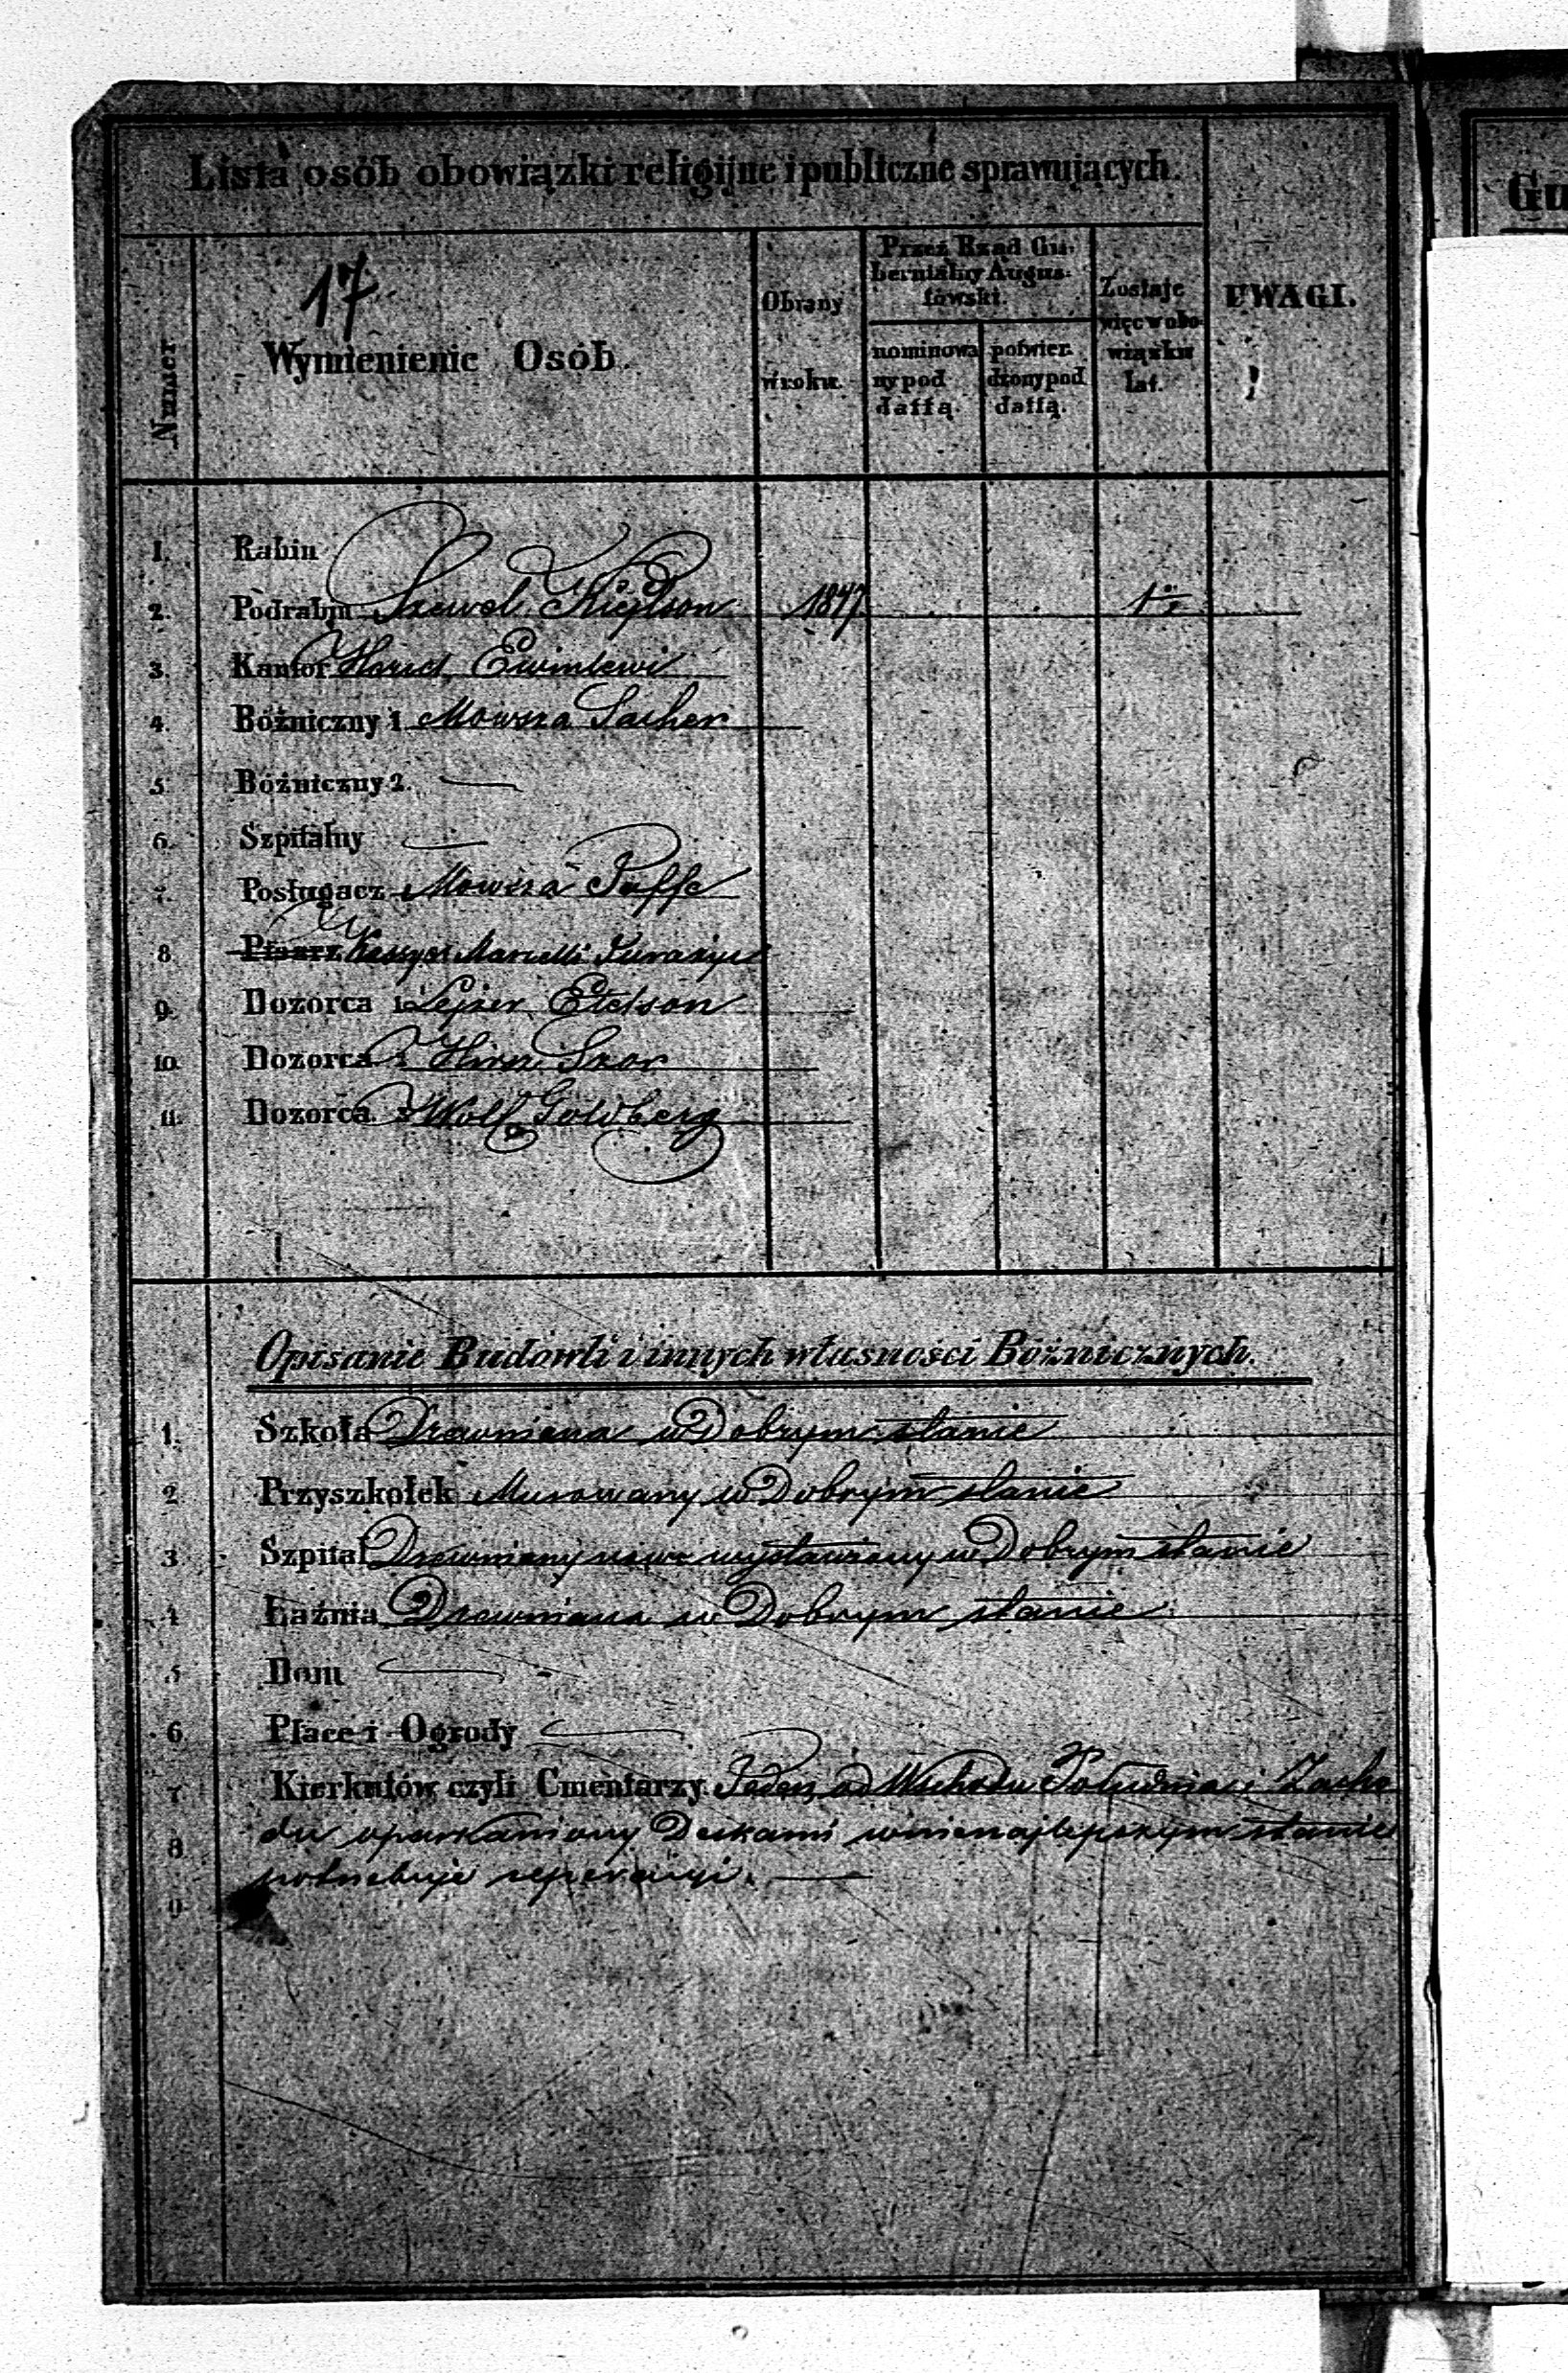 Lista osób obowiązki religijne i publiczne sprawujących.
Gu
Numer
17
Wymienienie Osób.
Obrany w roku.
Przez Rząd Gubernialny Augustowski.
nominowany pod dattą.
potwierdzony pod dattą.
Zostaje więc w obowiązku lat.
UWAGI.
1. Rabin
2. Podrabin Szewel 1847 1
3. Kantor
4. Bóżniczny 1 Mowsza Sacher
5. Bóżniczny 2. —
6. Szpitalny —
7. Posługacz Mowsza
8 Pisarz Kassyer
9. Dozorca 1 Lejzer Etelson
10. Dozorca 2 Hirsz Szor
11. Dozorca 3 Wolf Goldberg
Opisanie Budowli i innych własności Bóżnicznych.
1. Szkoła Drewniana w Dobrym stanie
2 Przyszkołek Murowany w Dobrym stanie
3 Szpital Drewniany nowo wystawiony w Dobrym stanie
4 Łaźnia Drewniana w Dobrym stanie
5 Dom —
6 Place i Ogrody —
7 Kierkutów czyli Cmentarzy Jeden od Wschodu Południa i Zacho
8 du oparkaniony Deskami w nienajlepszym stanie
9 potrzebuje reperacyi. —